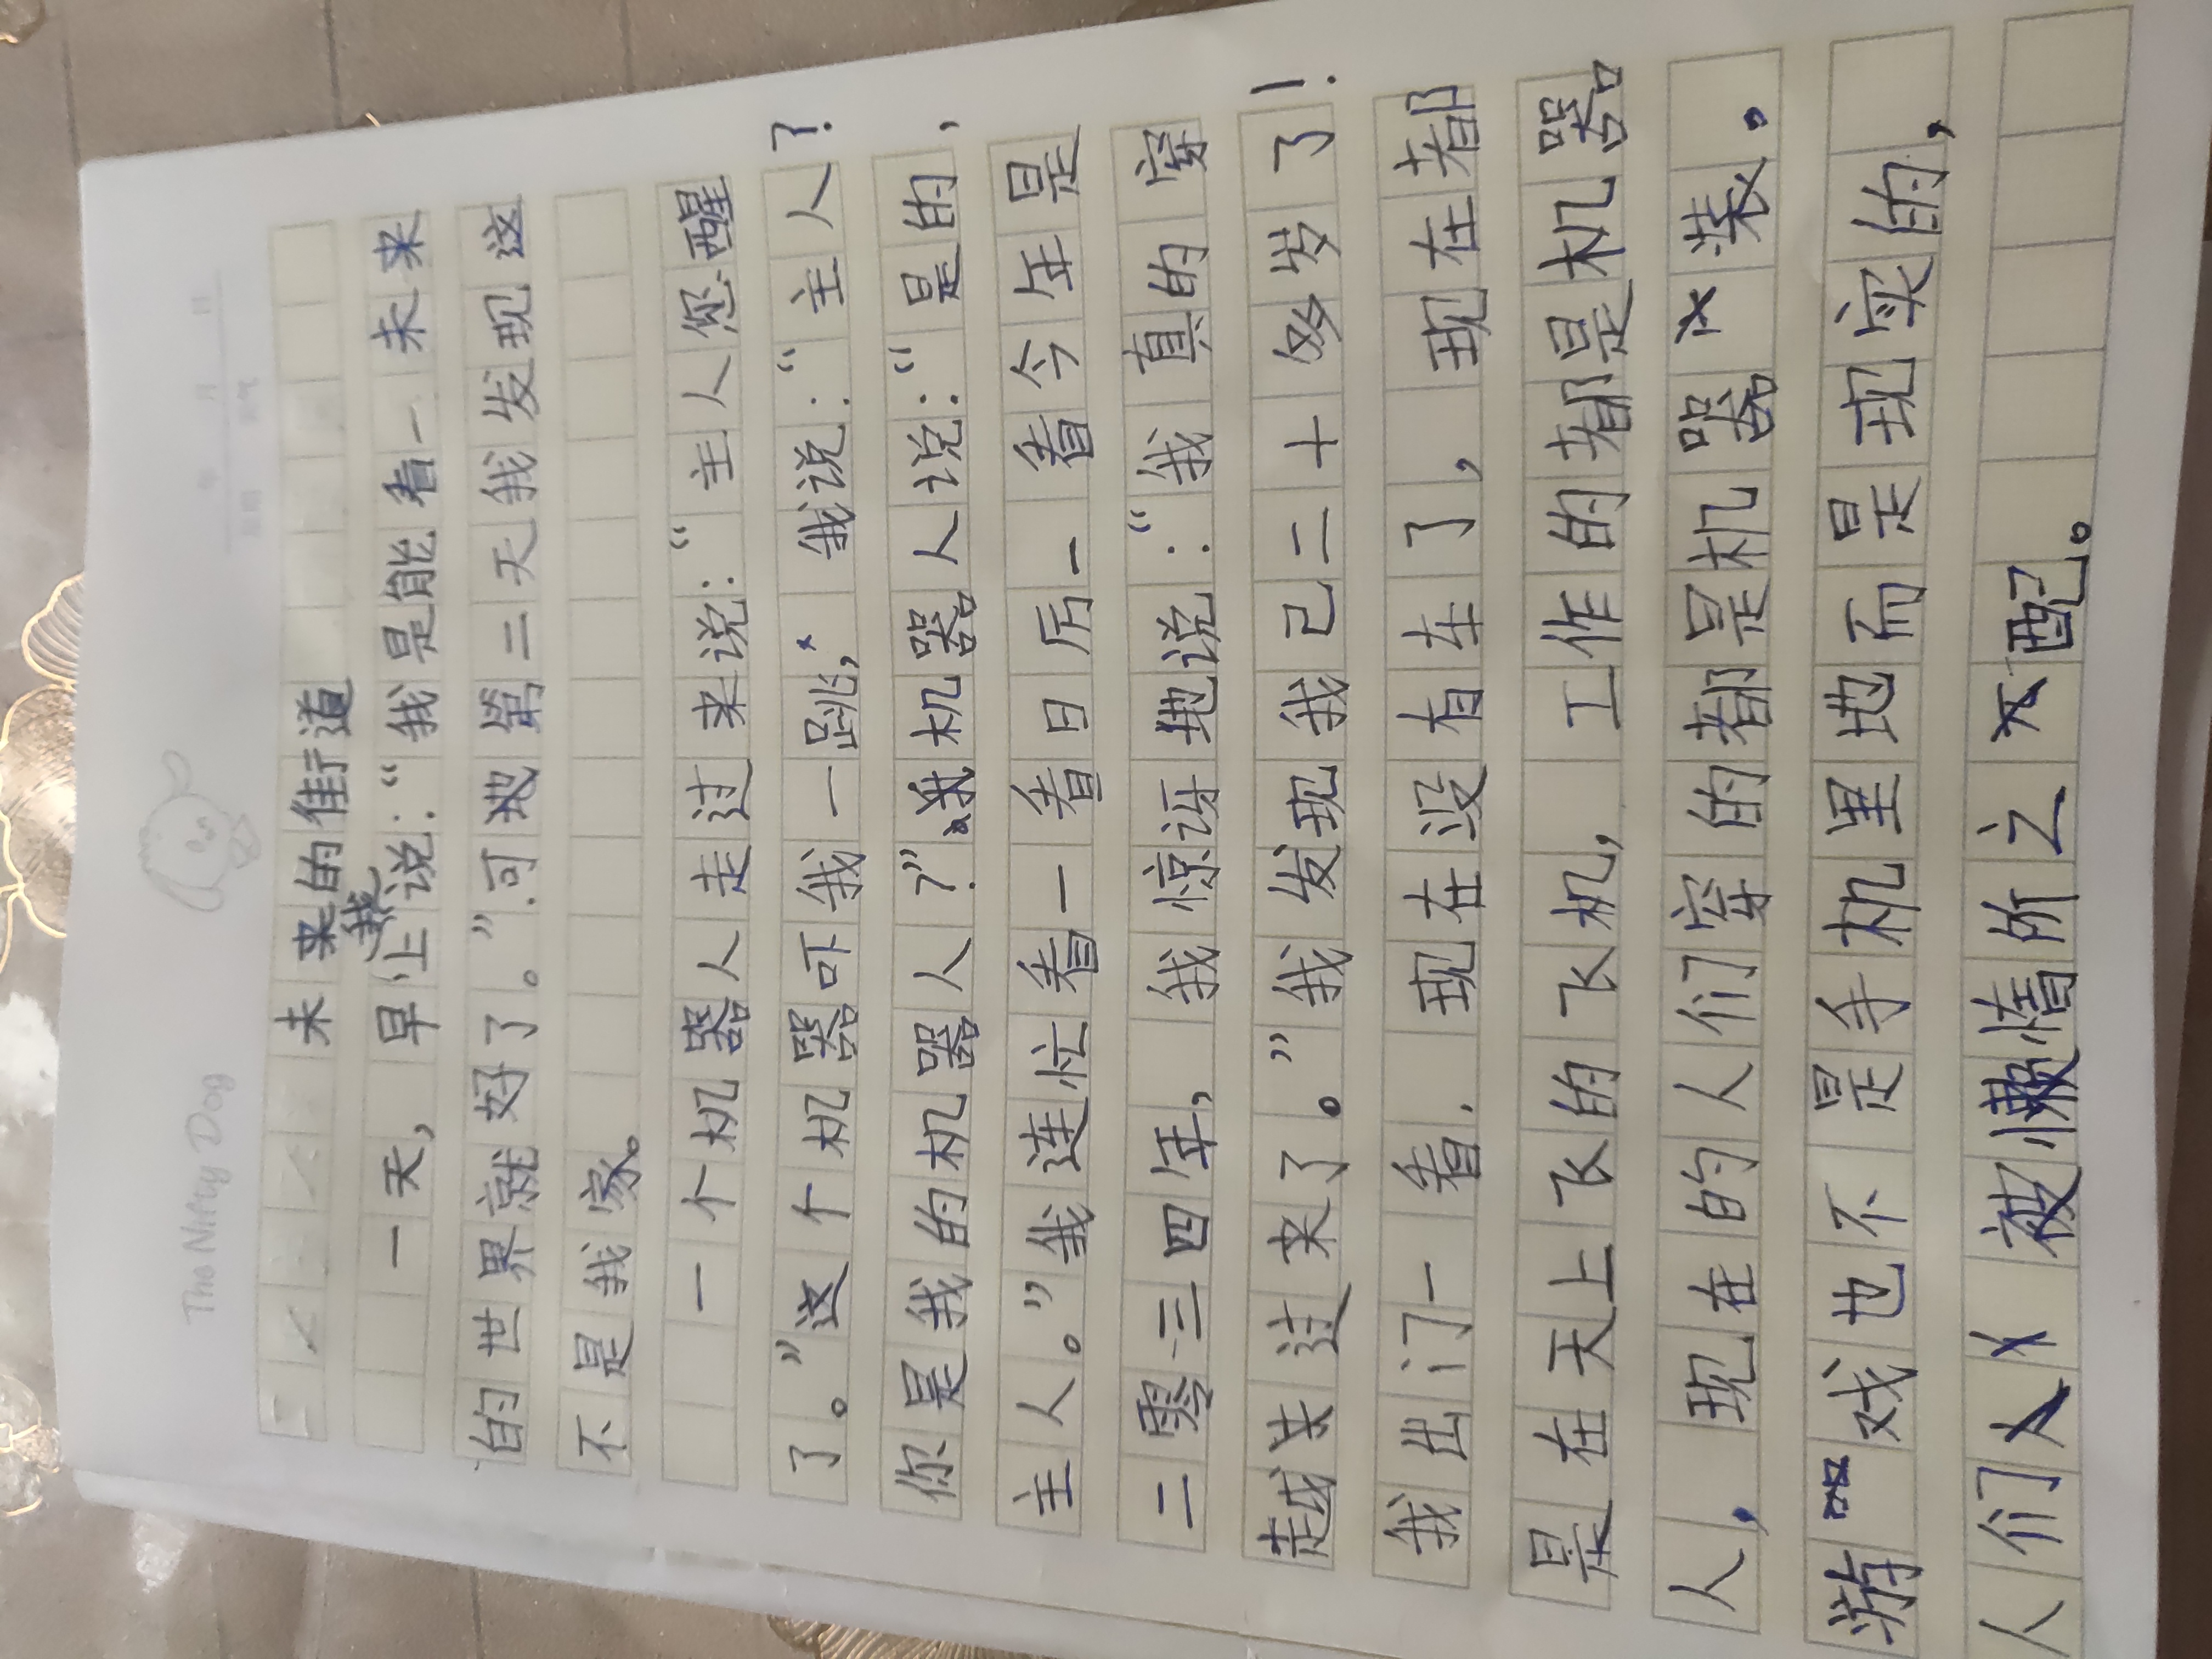 The Nifty Dog
未来的街道
一天，早上我说：“我是能看一未来
的世界就好了。”可第二天我发现这
不是我家。
一个机器人走过来说：“主人您醒
了。”这个机器吓我一跳，我说：“主人？
你是我的机器人？”机器人说：“是的，
主人。”我连忙看一看日厉一看今年是
二零三四年，我惊讶地说：“我真的穿
越过来了。”我发现我己二十多岁了！
我出门一看．现在没有车了，现在都
是在天上飞的飞机，工作的都是机器
人，现在的人们穿的都是机器装．
游戏也不是手机里地而是现实的，
人们被懒惰所之配。